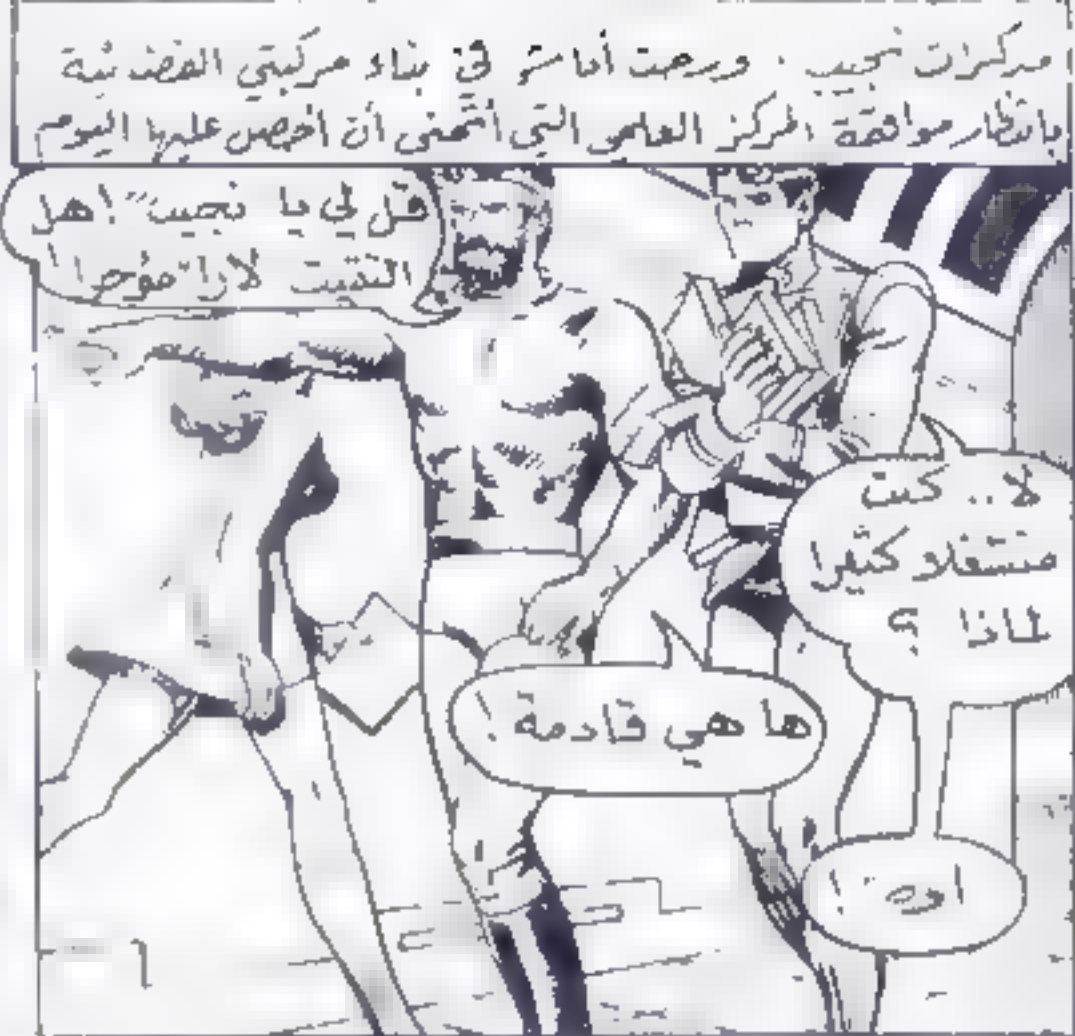 مذكرات نجيب . ورحت أنا في بناء مركبتي الفضائية
بانتظار موافقة المركز العلمي التي أتمنى أن أحصل عليها اليوم
قل لي يا نجيب .. ! هل
التقيت لارا مؤخرا
لا .. كنت
منشغلا كثيرا
لماذا ؟
ها هي قادمة !
اوه !
٦